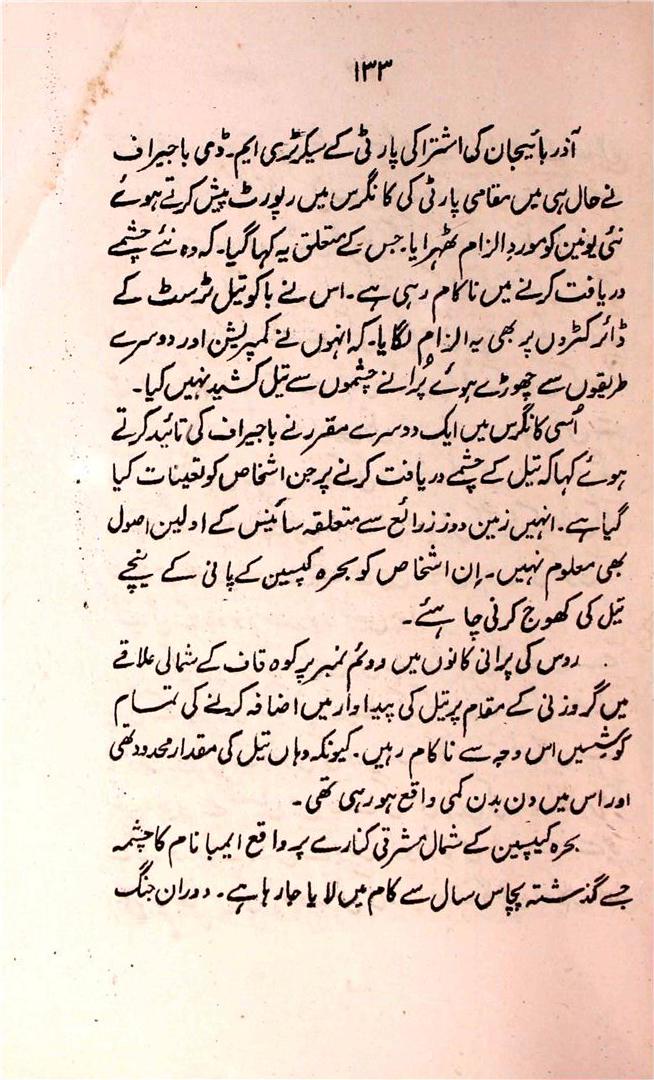 ۱۳۳
آذر بائیجان کی اشتراکی پارٹی کے سیکرٹری ایم۔ ڈمی باجیراف
نے حال ہی میں مقامی پارٹی کی کانگرس میں رپورٹ پیش کرتے ہوئے
نئی یونین کو مورد الزام ٹھہرایا۔ جس کے متعلق یہ کہا گیا۔ کہ وہ نئے چشمے
دریافت کرنے میں ناکام رہی ہے۔ اس نے باکو تیل ٹرسٹ کے
ڈائرکٹروں پر بھی یہ الزام لگایا۔ کہ انہوں نے کمپریشن اور دوسرے
طریقوں سے چھوڑے ہوئے پُرانے چشموں سے تیل کشید نہیں کیا۔
اُسی کانگرس میں ایک دوسرے مقرر نے باجیراف کی تائید کرتے
ہوئے کہا کہ تیل کے چشمے دریافت کرنے پر جن اشخاص کو تعینات کیا
گیا ہے۔ انہیں زمین دوز زرائع سے متعلقہ سائینس کے اولین اصول
بھی معلوم نہیں۔ اِن اشخاص کو بحرہ کیسپین کے پانی کے نیچے
تیل کی کھوج کرنی چاہئے۔
روس کی پرانی کانوں میں دوئم نمبر پر کوہ قاف کے شمالی علاقے
میں گروزنی کے مقام پر تیل کی پیداوار میں اضافہ کرنے کی تمام
کوششیں اس وجہ سے ناکام رہیں۔ کیونکہ وہاں تیل کی مقدار محدود تھی
اور اس میں دن بدن کمی واقع ہو رہی تھی۔
بحرہ کیپسین کے شمال مشرقی کنارے پر واقع ایمبا نام کا چشمہ
جسے گذشتہ پچاس سال سے کام میں لایا جا رہا ہے۔ دوران جنگ